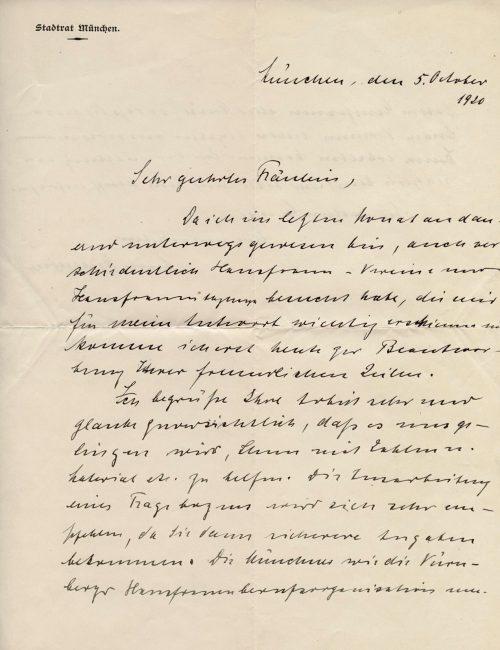 Stadtrat München.
München, den 5. October
1920
Sehr geehrtes Fräulein,
Da ich im letzten Monat andau-
ernd unterwegs gewesen bin, auch ver
schiedentlich Hausfrauen-Vereine und
Hausfrauentagungen besucht habe, die mir
für meine Antwort wichtig erschienen
komme ich erst heute zur Beantwor-
tung Ihrer freundlichen Zeilen.
Ich begrüße Ihre Arbeit sehr und
glaube zuversichtlich, daß es uns ge-
lingen wird, Ihnen mit Zahlen u.
Material etc. zu helfen. Die Ausarbeitung
eines Fragebogens wird sich sehr em-
pfehlen, da Sie dann sicherere Angaben
bekommen. Die Münchner wie die Nürn-
berger Hausfrauenberufsorganisation